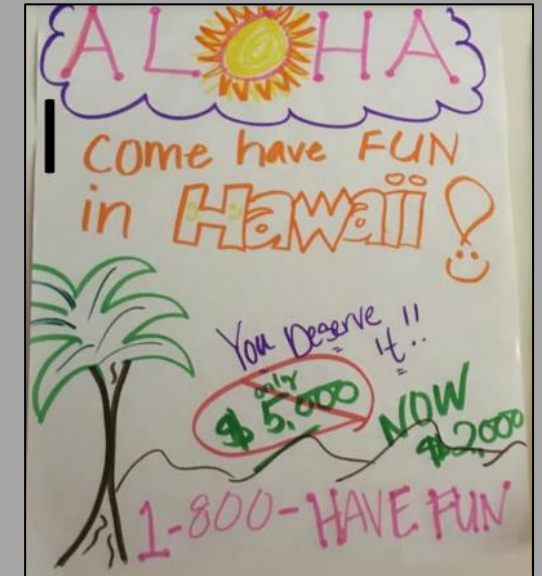 ALOHA
Come have FUN
in Hawaii!
You Deserve It!!
only
$5,000
NOW
$2000
1-800-HAVE FUN